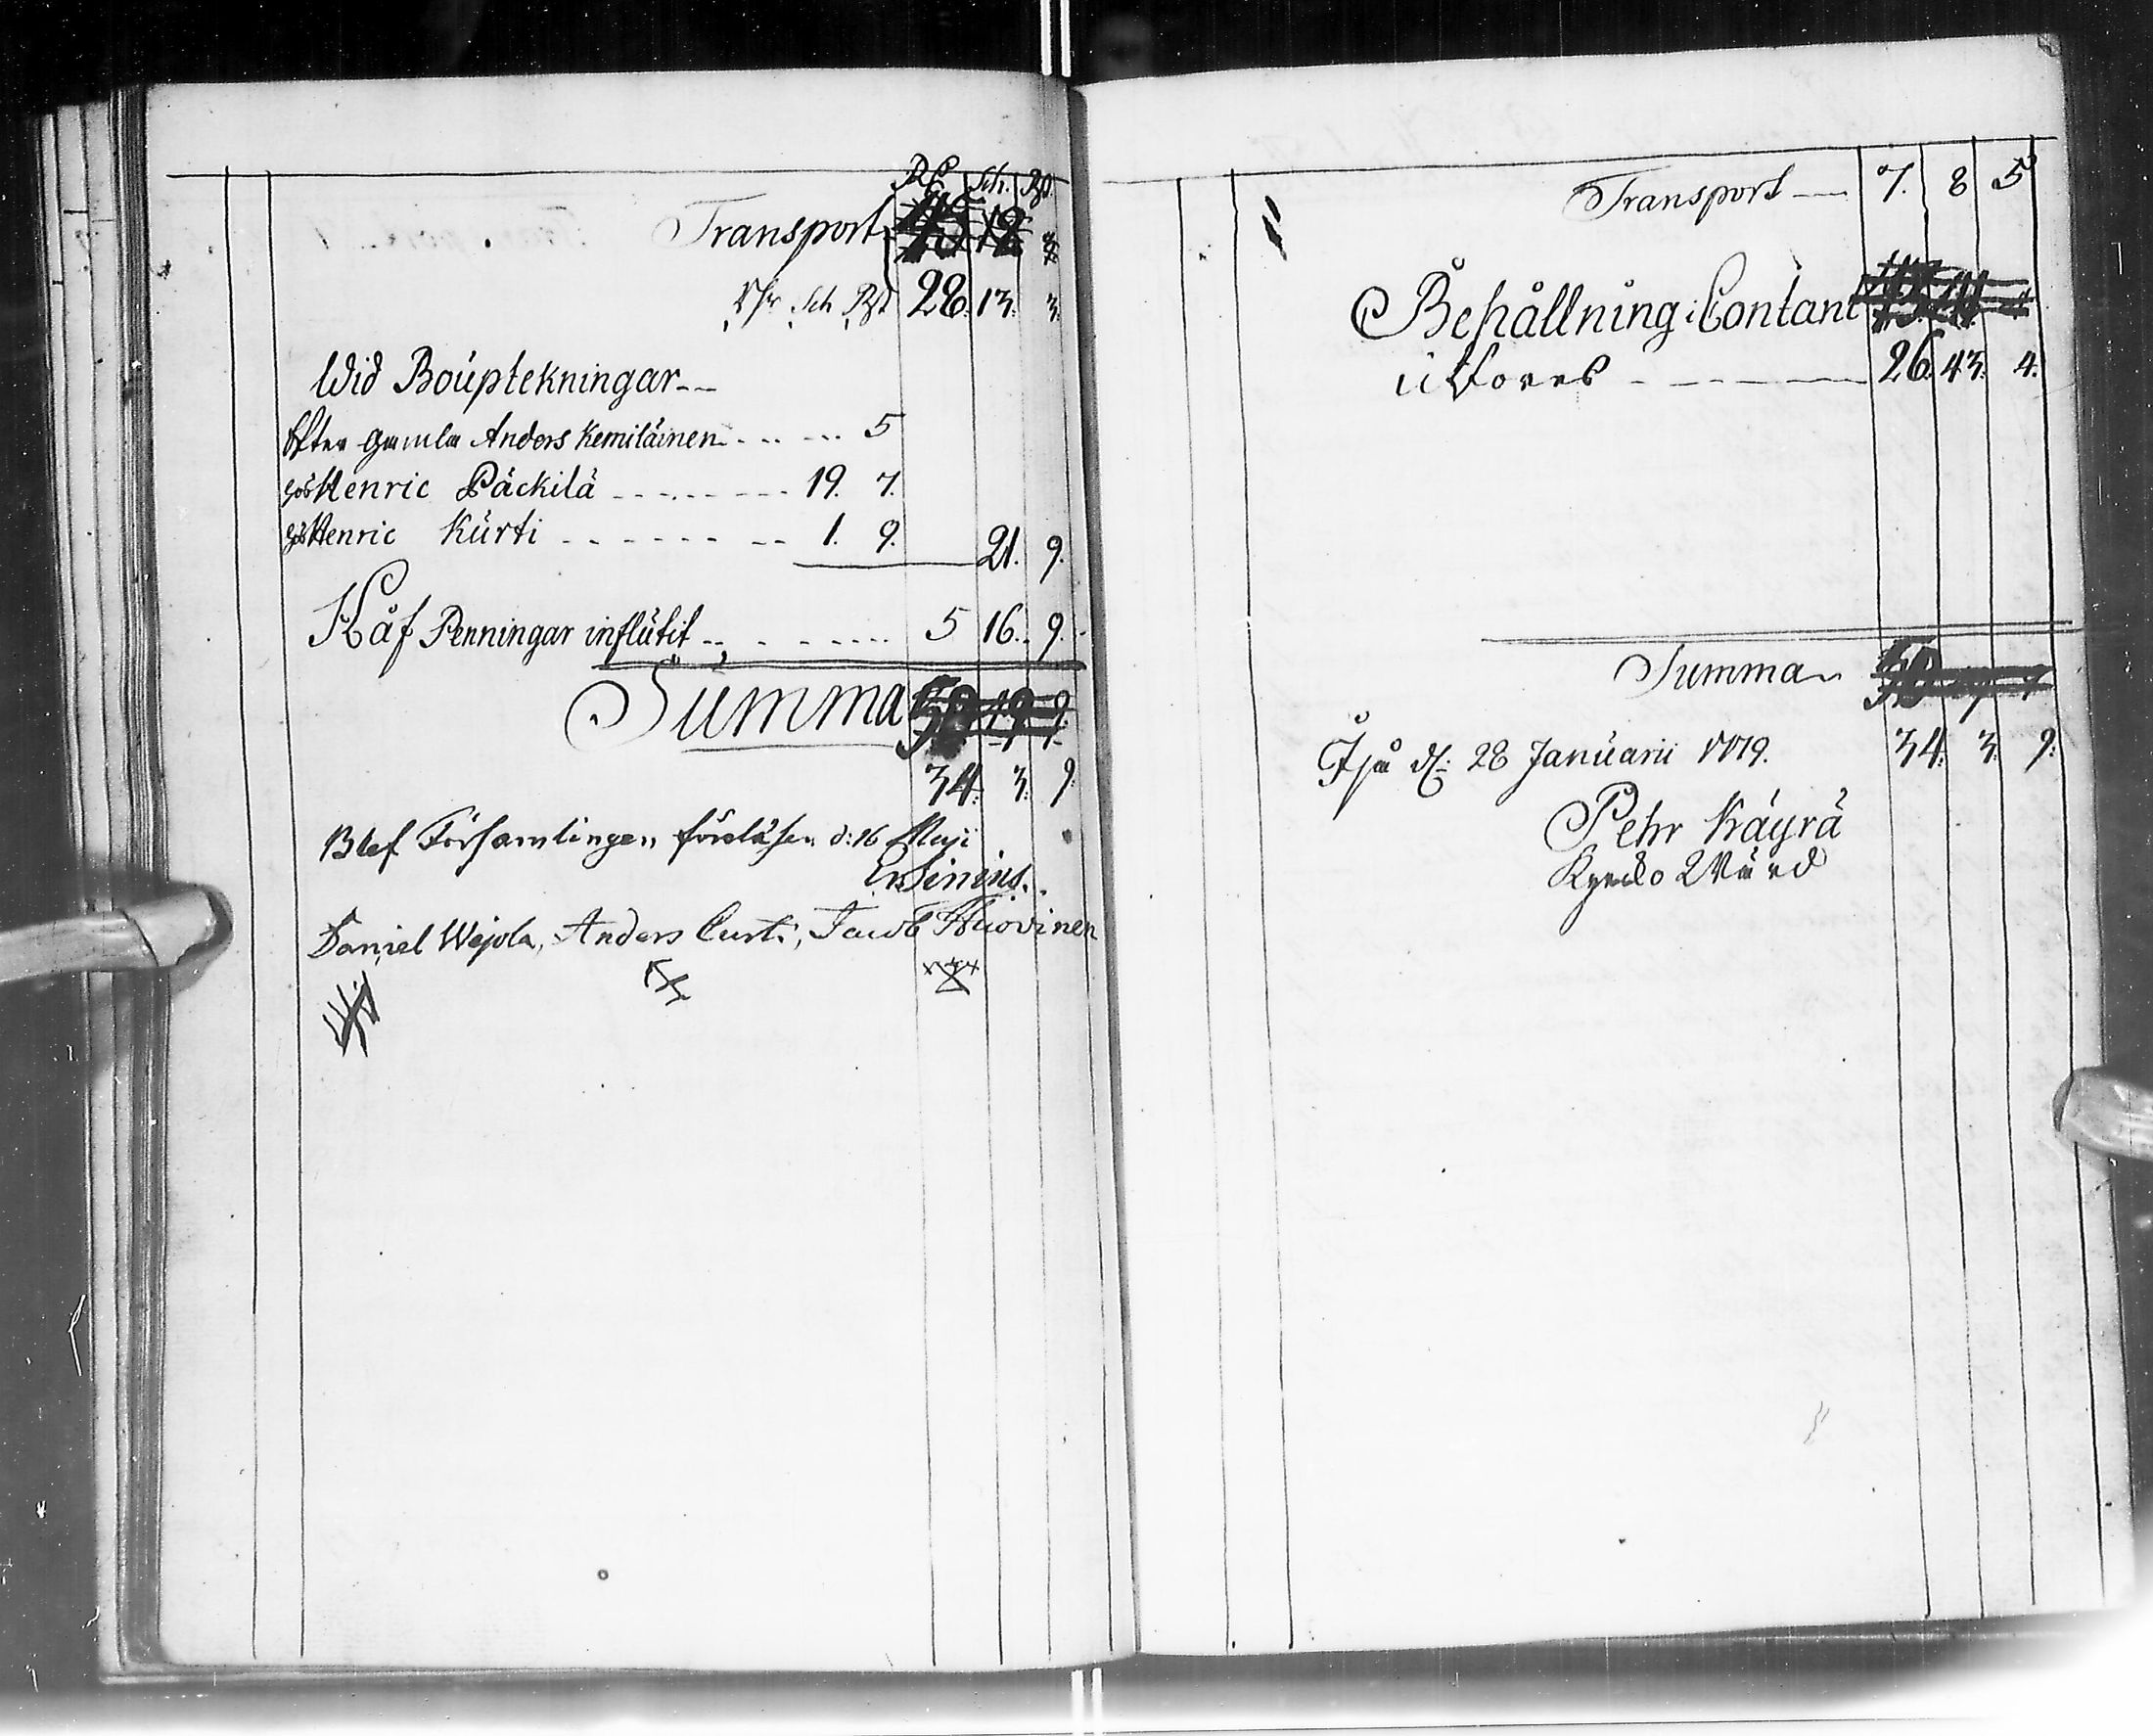 Rd Sch. Rst.
Transport 45 12
Rdr Sch Rst 28. 13. 3.
Wid Boúptekningar
Efter gamla Anders Kemiläinen 5
hos Henric Päckilä 19. 7.
hos Henric Kúrti 1. 9. 21. 9.
Håf Penningar inflútit 5 16. 9.
Súmma
34. 3. 9.
Blef Församlingen föreläsen d: 16 Maji
Daniel Wejola, Anders Curti, Jacob Huovinen
Transport 7. 8 5
Behållning i Contant
26. 43. 4.
Summa
d: 28 Janúarii 34. 3. 9.
Pehr Käyrä
Kyrckowärd